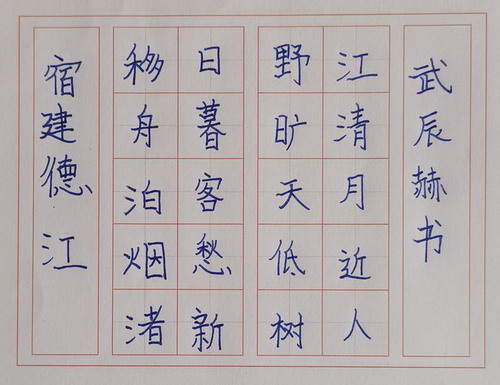 宿建德江
移舟泊烟渚
日暮客愁新
野旷天低树
江清月近人
武辰赫书